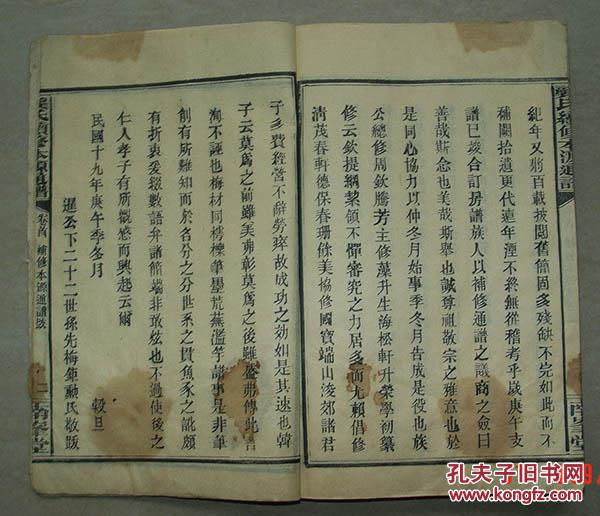 龔氏續修本源通譜
紀年又將百載披閱舊簡固多殘缺不完如此而不
補闕拾遺更代遠年湮不終無從稽考乎歲庚午支
譜已竣合訂房譜族人以補修通譜之議商之僉曰
善哉斯念也美哉斯舉也誠尊祖敬宗之雅意也於
是同心協力以仲冬月始事季冬月告成是役也族
公總修周欽騰芳主修藻升生海松軒升榮學初纂
修云欽提綱絜領不憚審究之力居多而尤賴倡修
清茂春軒德保春珊條美協修國寶端山浚郊諸君
子多費經營不辭勞瘁故成功之効如是其速也韓
子云莫為之前雖美弗彰莫為之後雖盛弗傳此言
洵不誣也梅材同樗櫟筆墨荒蕪濫竽譜事是非筆
創有所難知而於名分之分世系之貫魚豕之訛頗
有折衷爰綴數語弁諸簡端非敢炫也不過使後之
仁人孝子有所觀感而興起云爾
民國十九年庚午季冬月
穀旦
暹公下二十二世孫先梅鉅勳氏敬跋
龔氏續修本源通譜
卷首
補修本源通譜跋
二
孔夫子旧书网
www.kongfz.com